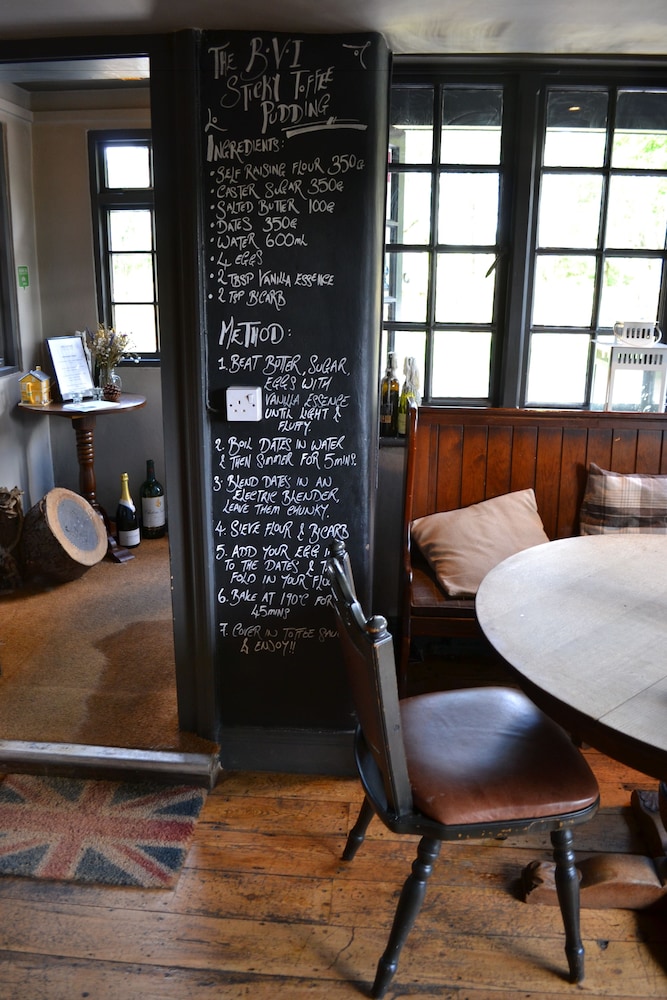 THE B.V.I
STICKY TOFFEE
PUDDING
INGREDIENTS:
• SELF RAISING FLOUR 350G
• CASTER SUGAR 350G
• SALTED BUTTER 100G
• DATES 350G
• WATER 600ML
• 4 EGGS
• 2 TBSP VANILLA ESSENCE
• 2 TSP BICARB
METHOD:
1. BEAT BUTTER, SUGAR,
EGGS WITH
VANILLA ESSENCE
UNTIL LIGHT &
FLUFFY.
2. BOIL DATES IN WATER
& THEN SIMMER FOR 5 MINS.
3. BLEND DATES IN AN
ELECTRIC BLENDER,
LEAVE THEM CHUNKY.
4. SIEVE FLOUR & BICARB
5. ADD YOUR EGG
TO THE DATES &
FOLD IN YOUR
6. BAKE AT 190°C FOR
45 MINS
7. COVER IN TOFFEE
& ENJOY!!